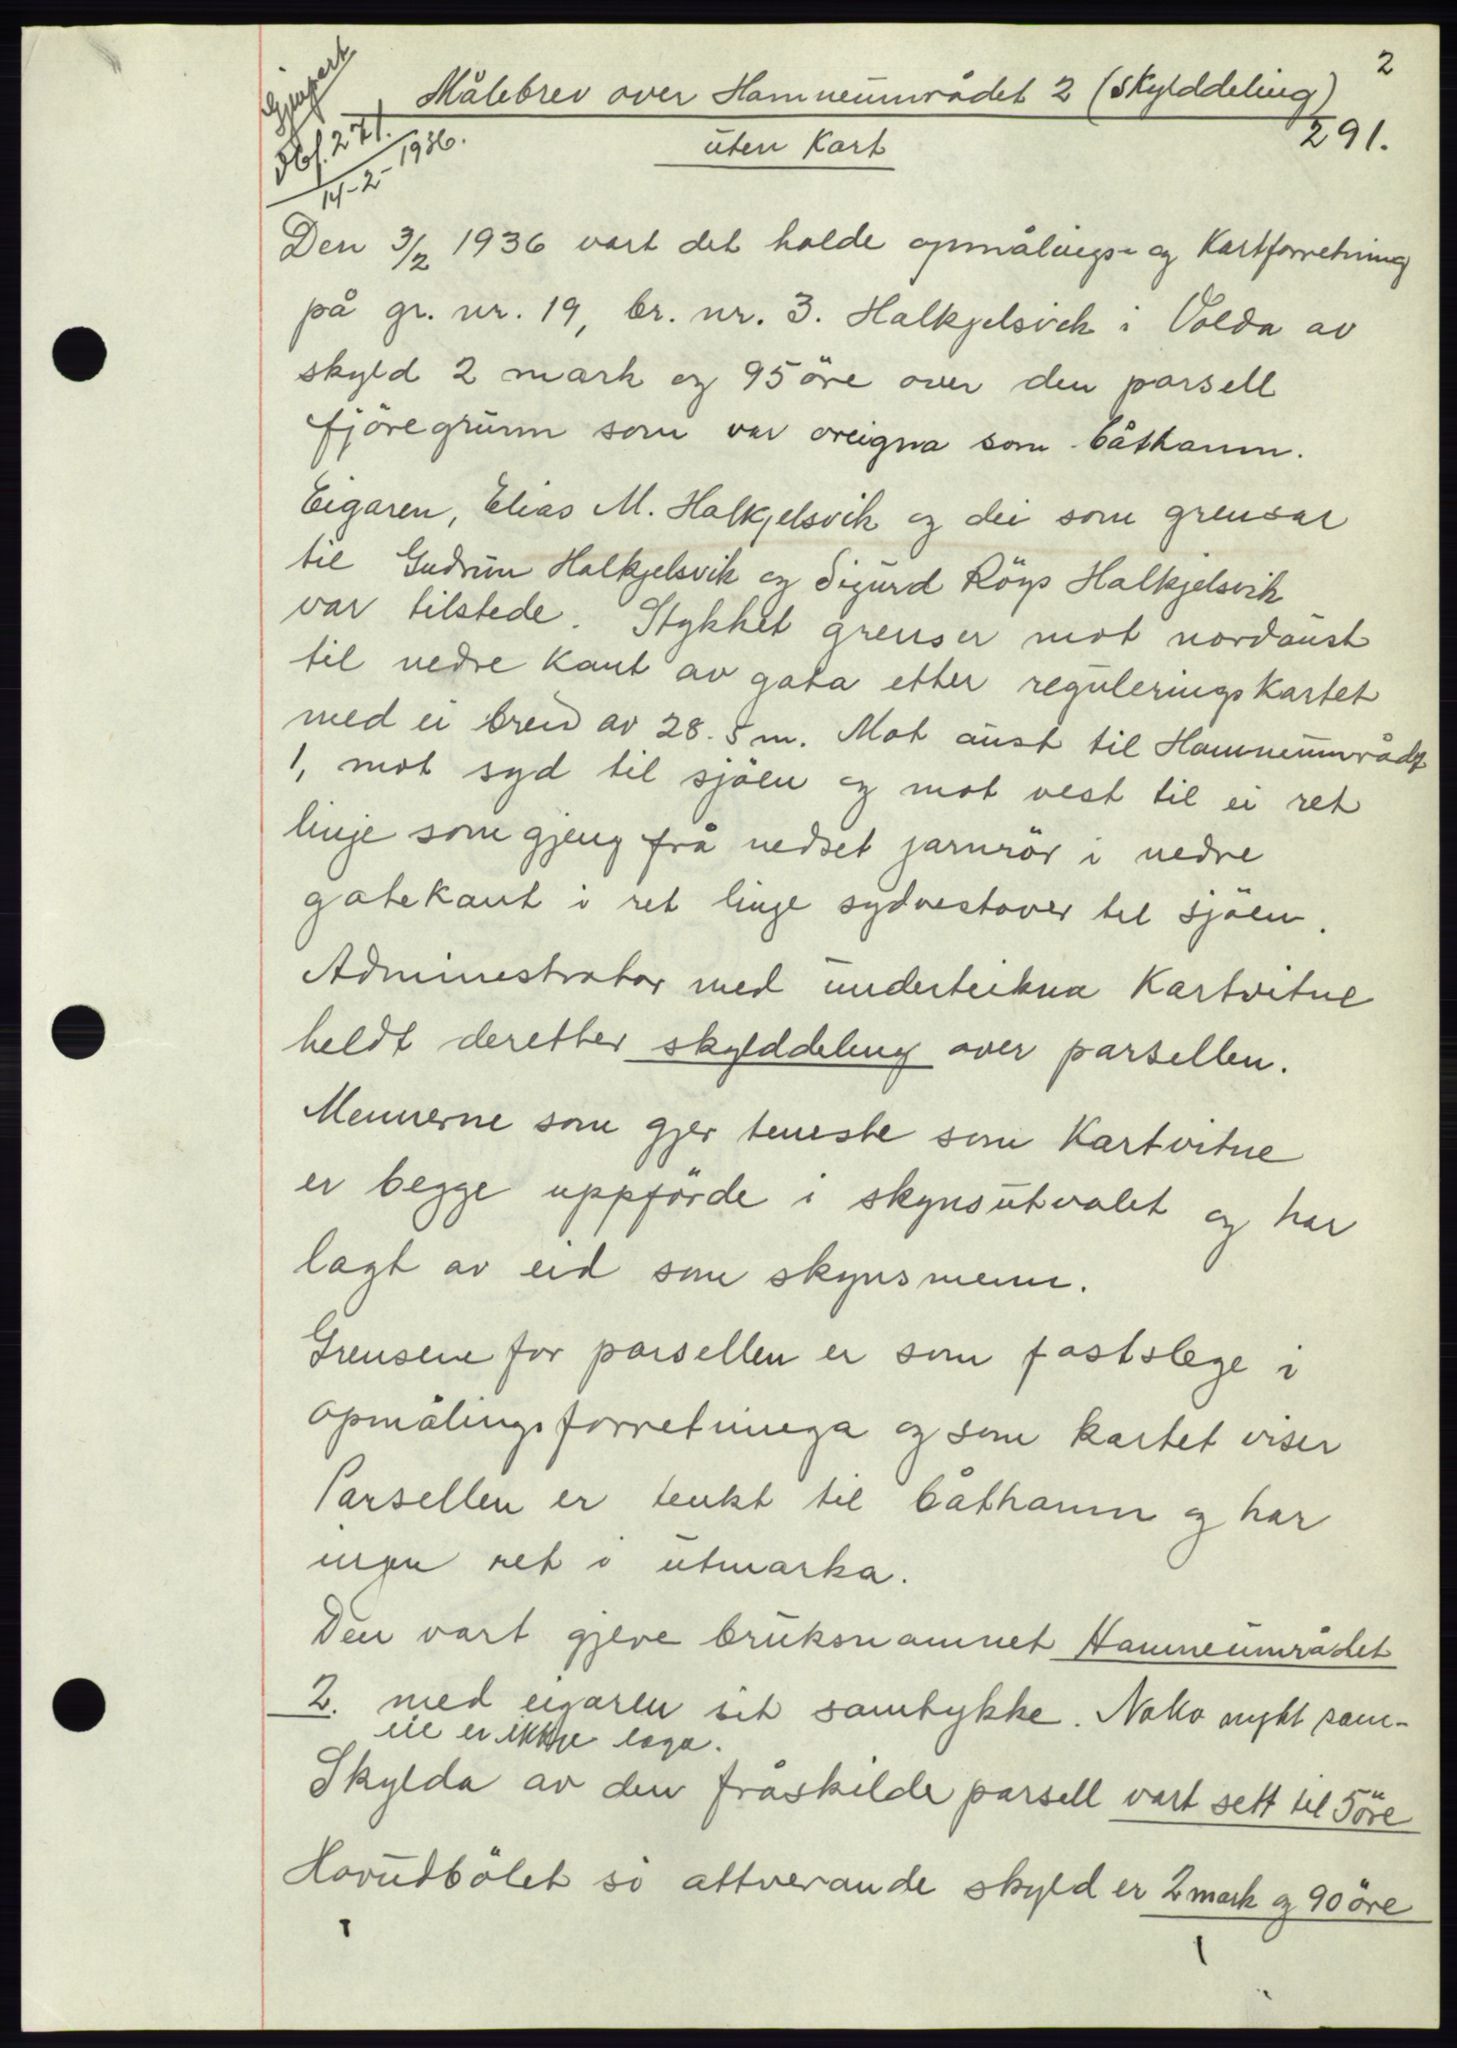 2
Gjenpart
Dbf. 271.
14-2-1936.
Målebrev over Hamneumrådet 2 (skylddeling)
291.
uten Kart
Den 3/2 1936 vart det halde opmålings- og Kartforretning
på gr. nr. 19, br. nr. 3. Halkjelsvik i Volda av
skyld 2 mark og 95 öre over den parsell
fjöregrunn som var oreigna som båthamn.
Eigaren, Elias M. Halkjelsvik og dei som grensar
til Gudrun Halkjelsvik og Sigurd Röys Halkjelsvik
var tilstede. Stykket grenser mot nordaust
til nedre kant av gata etter reguleringskartet
med ei breid av 28.5 m. Mot aust til Hamneumrådet
1, mot syd til sjöen og mot vest til ei ret
linje som gjeng frå nedset jarnrör i nedre
gatekant i ret linje sydvestover til sjöen.
Administrator med underteikna Kartvitne
heldt deretter skylddeling over parsellen.
Mennerne som gjer teneste som Kartvitne
er begge uppförde i skynsutvalet og har
lagt av eid som skynsmenn.
Grensene for parsellen er som fastslege i
opmålingsforretninga og som kartet viser
Parsellen er tenkt til båthamn og har
ingen ret i utmarka.
Den vart gjeve bruksnamnet Hamneumrådet
2. med eigaren sit samtykke. Noko nytt sam-
eie er ikkje laga.
Skylda av den fråskilde parsell vart sett til 5 öre
Hovudbölet si attverande skyld er 2 mark og 90 öre